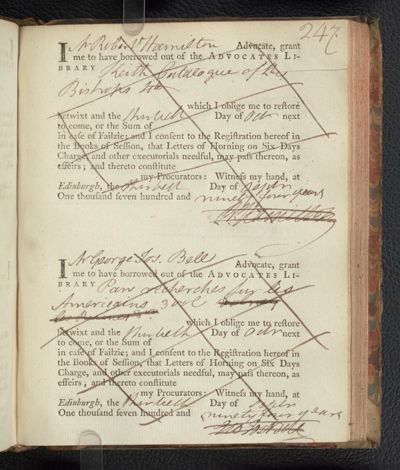 247
I Mr Robert Hamilton Advocate, grant
me to have borrowed out of the ADVOCATES LI-
BRARY Keith Catalogue of the
Bishops
which I oblige me to restore
betwixt and the thirtieth Day of Octr next
to come, or the Sum of
in case of Failzie; and I consent to the Registration hereof in
the Books of Session, that Letters of Horning on Six Days
Charge, and other executorials needful, may pass thereon, as
effeirs; and thereto constitute
my Procurators: Witness my hand, at
Edinburgh, the thirtieth Day of Septr
One thousand seven hundred and ninety four years
I Mr George Jos. Bell Advocate, grant
me to have borrowed out of the ADVOCATES LI-
BRARY Paw recherches sur les
Americains 3 vol
which I oblige me to restore
betwixt and the thirtieth Day of Octr next
to come, or the Sum of
in case of Failzie; and I consent to the Registration hereof in
the Books of Session, that Letters of Horning on Six Days
Charge, and other executorials needful, may pass thereon, as
effeirs; and thereto constitute
my Procurators: Witness my hand, at
Edinburgh, the thirtieth Day of Septr
One thousand seven hundred and ninety four years